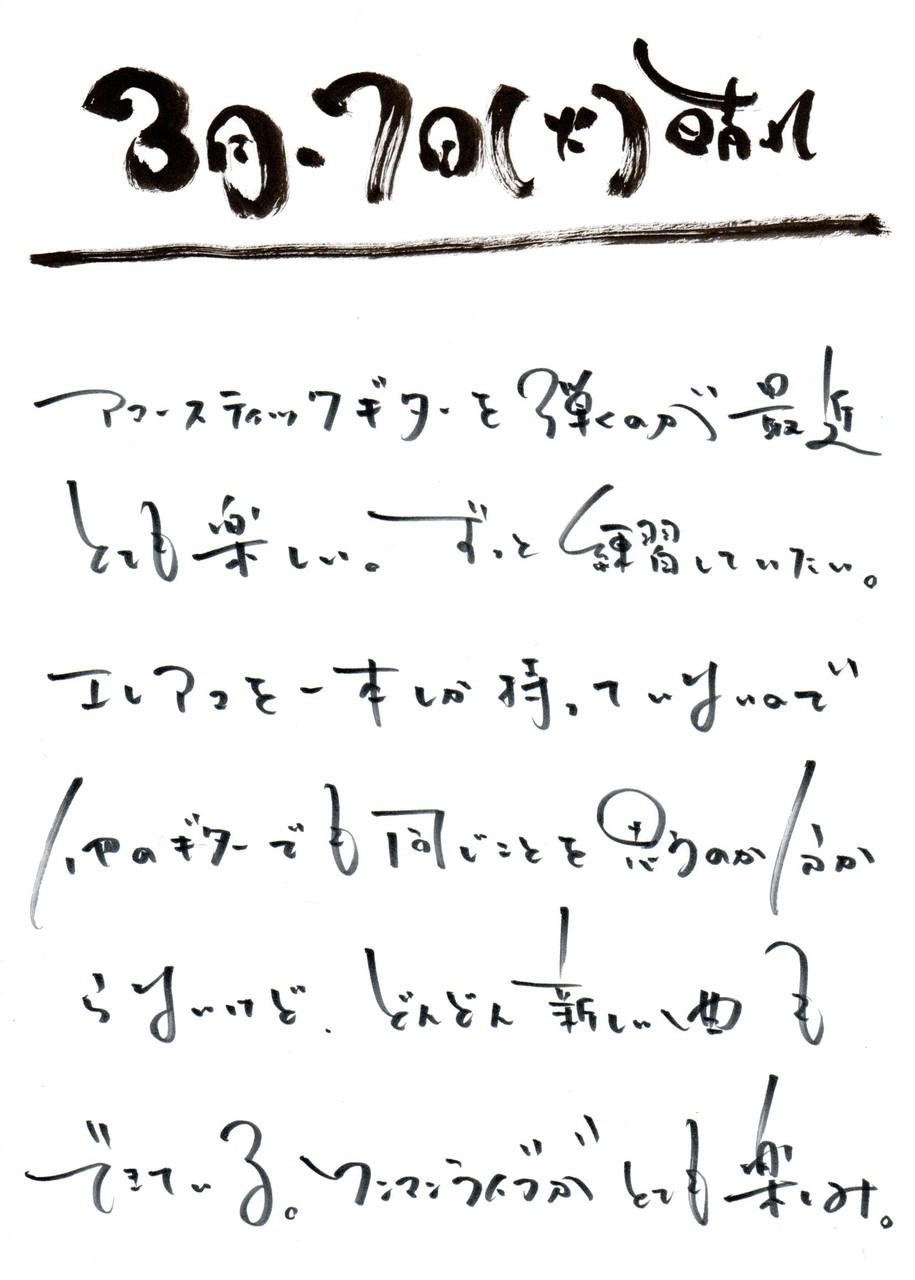 3月.7日(火)晴れ
アコースティックギターを弾くのが最近
とても楽しい。ずっと練習していたい。
エレアコを一本しか持っていないので
他のギターでも同じことを思うのか分か
らないけど、どんどん新しい曲も
できている。ワンマンライブがとても楽しみ。